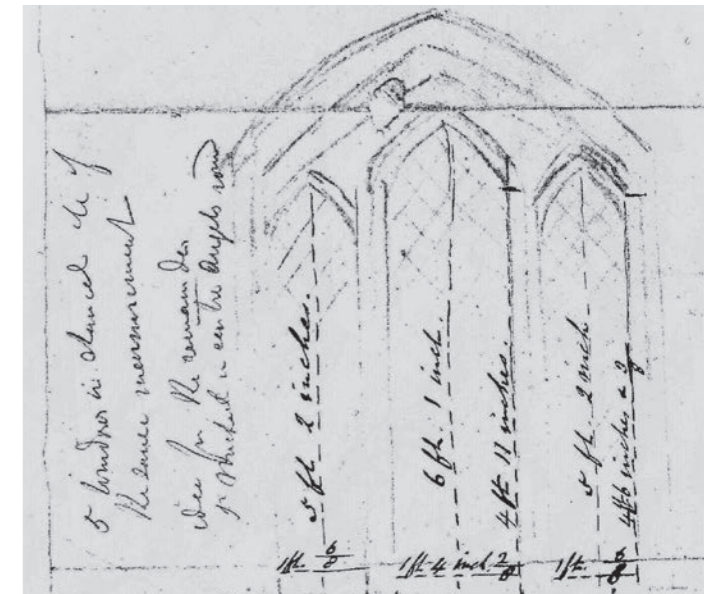 5 windows in chancel all of
the same measurement
idea for the remainder
S Michael in centre angels round
5 ft. 2 inches.
6 ft. 1 inch.
4 ft 11 inches.
5 ft. 2 inch
4 ft 6 inches & 3/8
1 ft. 6/8
1 ft 4 inch. 2/8
1 ft. 6/8